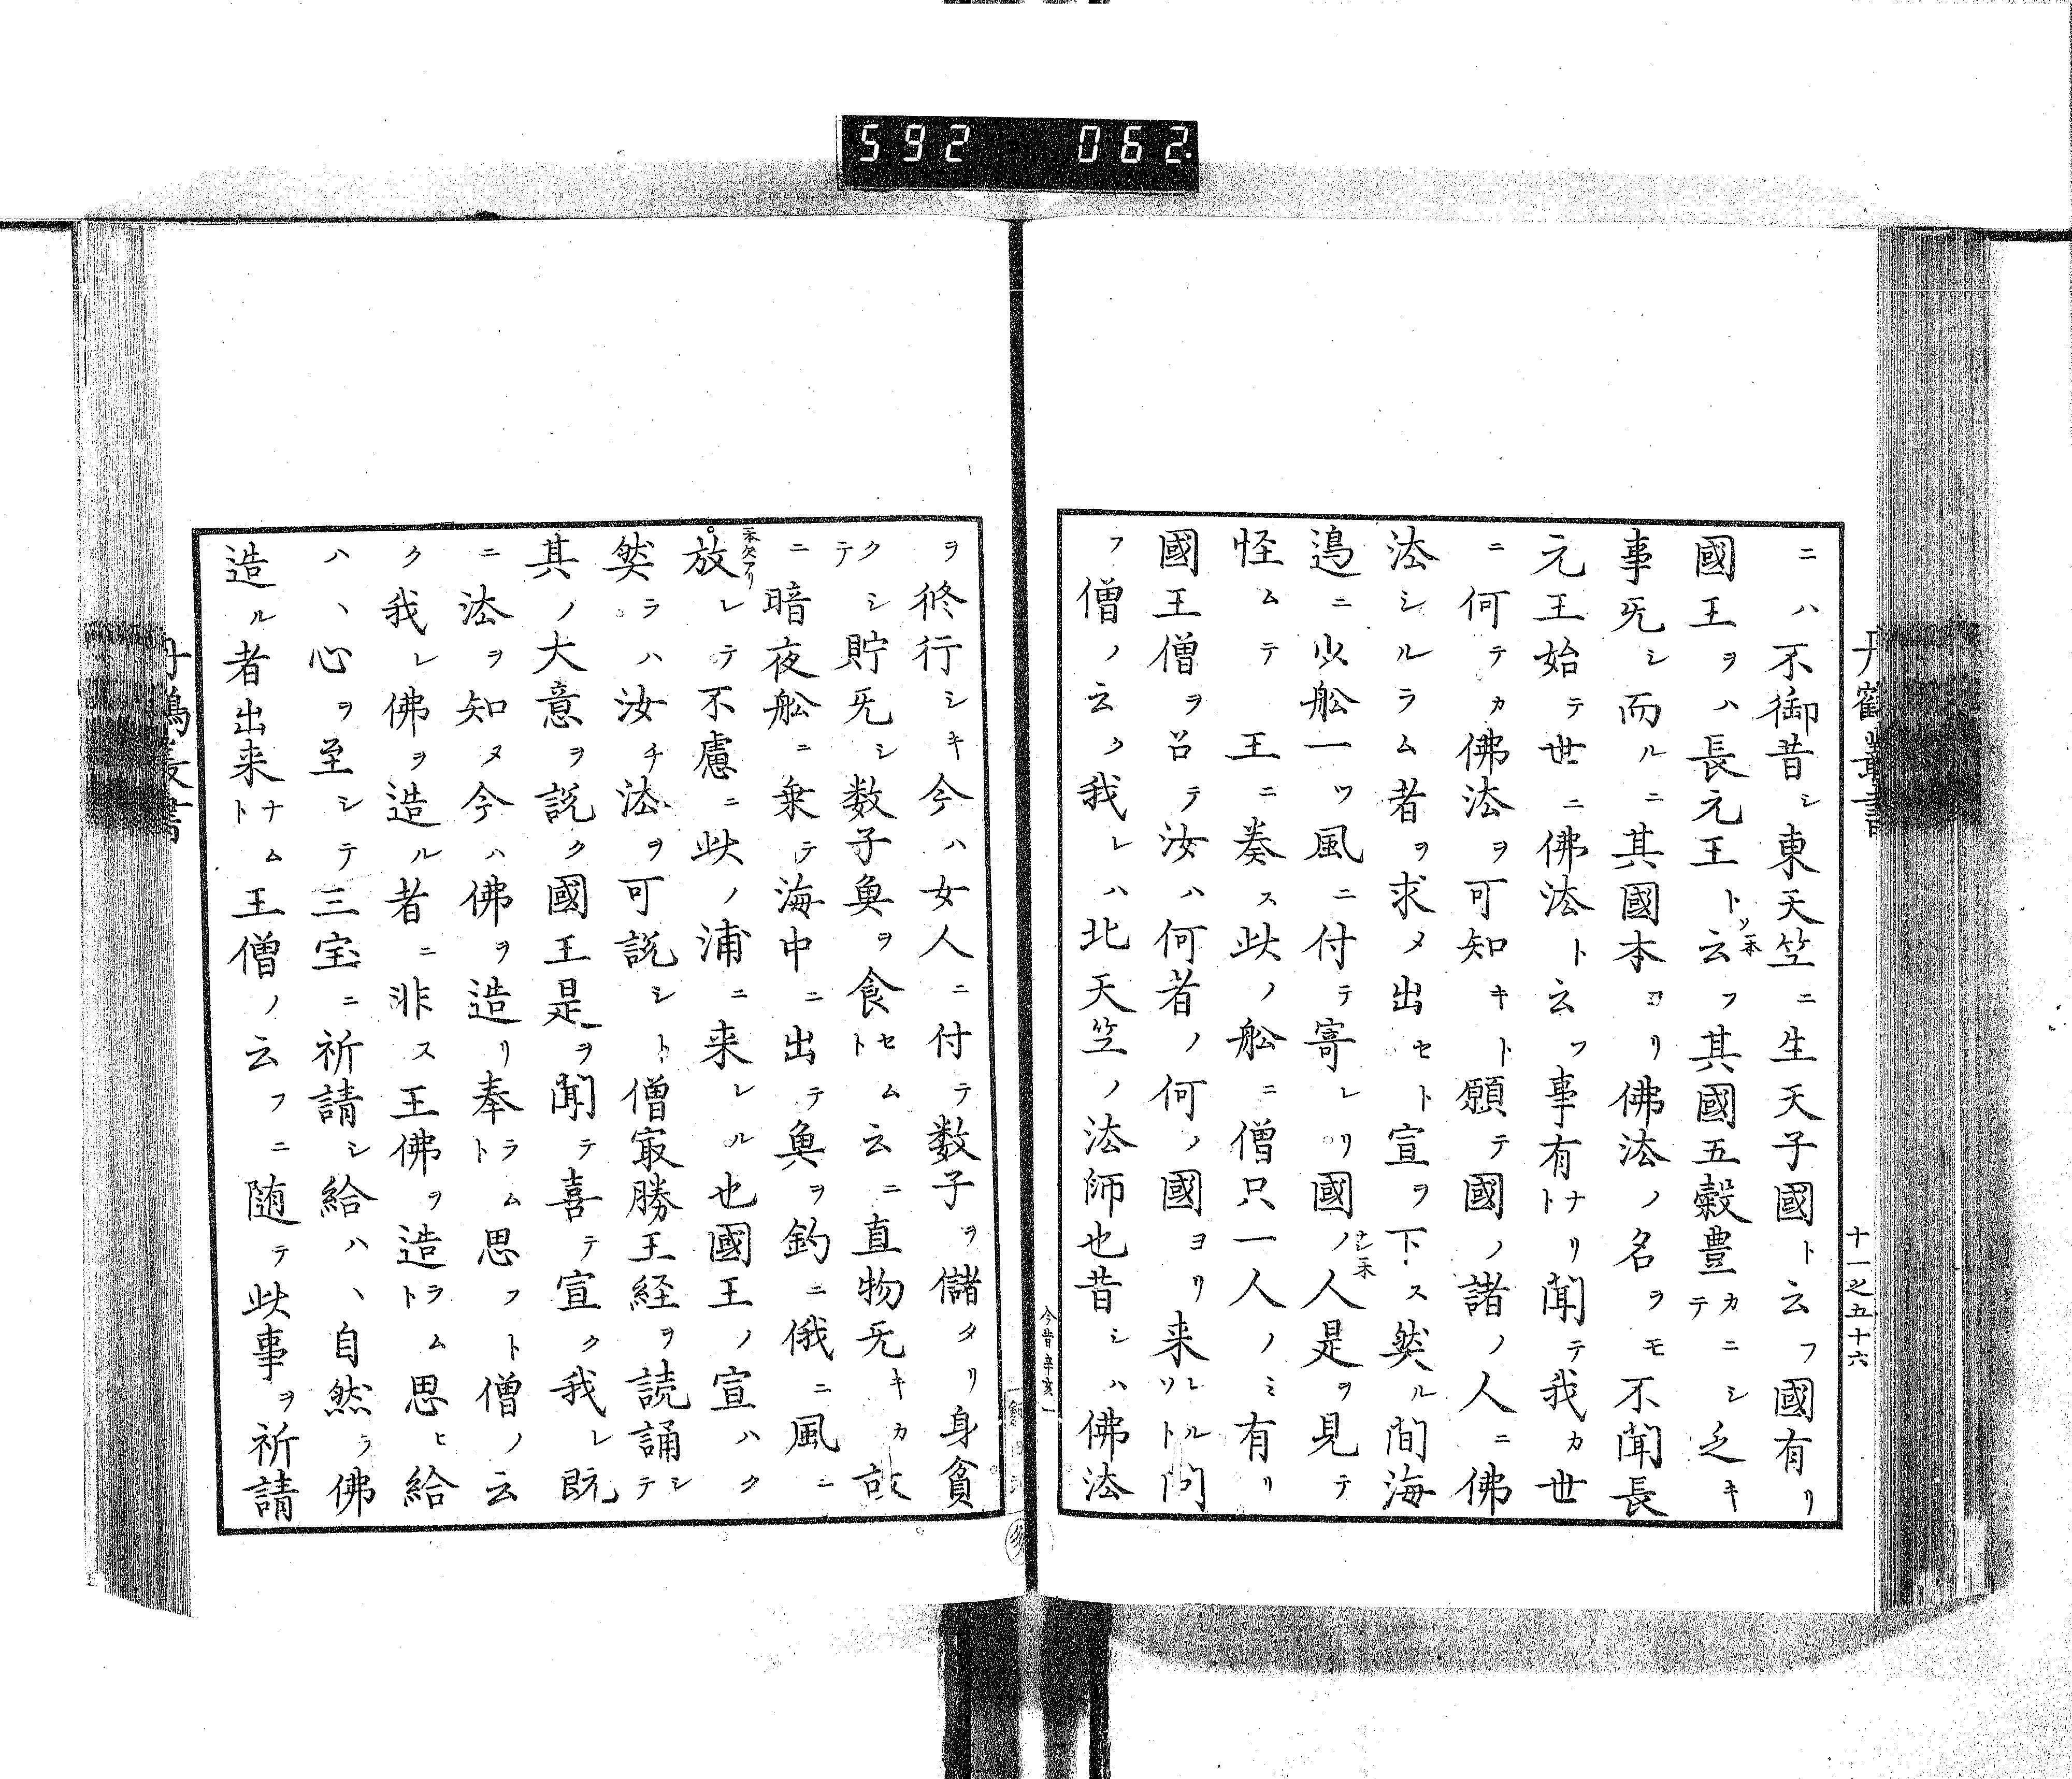 592 062
丹鶴叢書
十一之五十六
ニハ不御昔シ東天竺ニ生天子國ト云フ國有リ
國王ヲハ長元王トソ一本云フ其國五穀豊カニシテ乏キ
事旡シ而ルニ其國本ヨリ佛法ノ名ヲモ不聞長
元王始テ世ニ佛法ト云フ事有ナリト聞テ我カ世
ニ何テカ佛法ヲ可知キト願テ國ノ諸ノ人ニ佛
法シルラム者ヲ求メ出セト宣ヲ下ス然ル間海
邉ニ少舩一ツ風ニ付テ寄レリ國ノナシ一本人是ヲ見テ
怪ムテ王ニ奏ス此ノ舩ニ僧只一人ノミ有リ
國王僧ヲ召テ汝ハ何者ノ何ノ國ヨリ来レルソト問
フ僧ノ云ク我レハ北天竺ノ法師也昔シハ佛法
今昔辛亥一
ヲ修行シキ今ハ女人ニ付テ数子ヲ儲タリ身貧
クシテ貯旡シ数子魚ヲ食セムト云ニ直物旡キカ故
ニ暗夜舩ニ乗テ海中ニ出テ魚ヲ釣ニ俄ニ風ニ
一本欠アリ。放レテ不慮ニ此ノ浦ニ来レル也國王ノ宣ハク
然ラハ汝チ法ヲ可説シト僧冣勝王経ヲ読誦シテ
其ノ大意ヲ説ク國王是ヲ聞テ喜テ宣ク我レ既
ニ法ヲ知ヌ今ハ佛ヲ造リ奉ラムト思フト僧ノ云
ク我レ佛ヲ造ル者ニ非ス王佛ヲ造ラムト思ヒ給
ハヽ心ヲ至シテ三宝ニ祈請シ給ハヽ自然ラ佛
造ル者出来ナムト王僧ノ云フニ随テ此事ヲ祈請